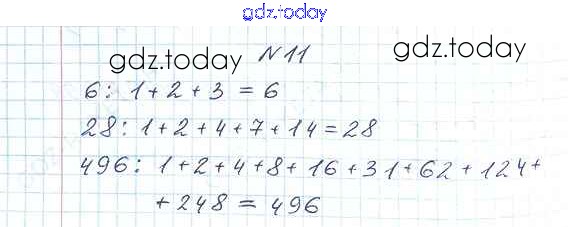 gdz.today
gdz.today N11 gdz.today
6: 1+2+3=6
28: 1+2+4+7+14=28
496: 1+2+4+8+16+31+62+124+
+248=496